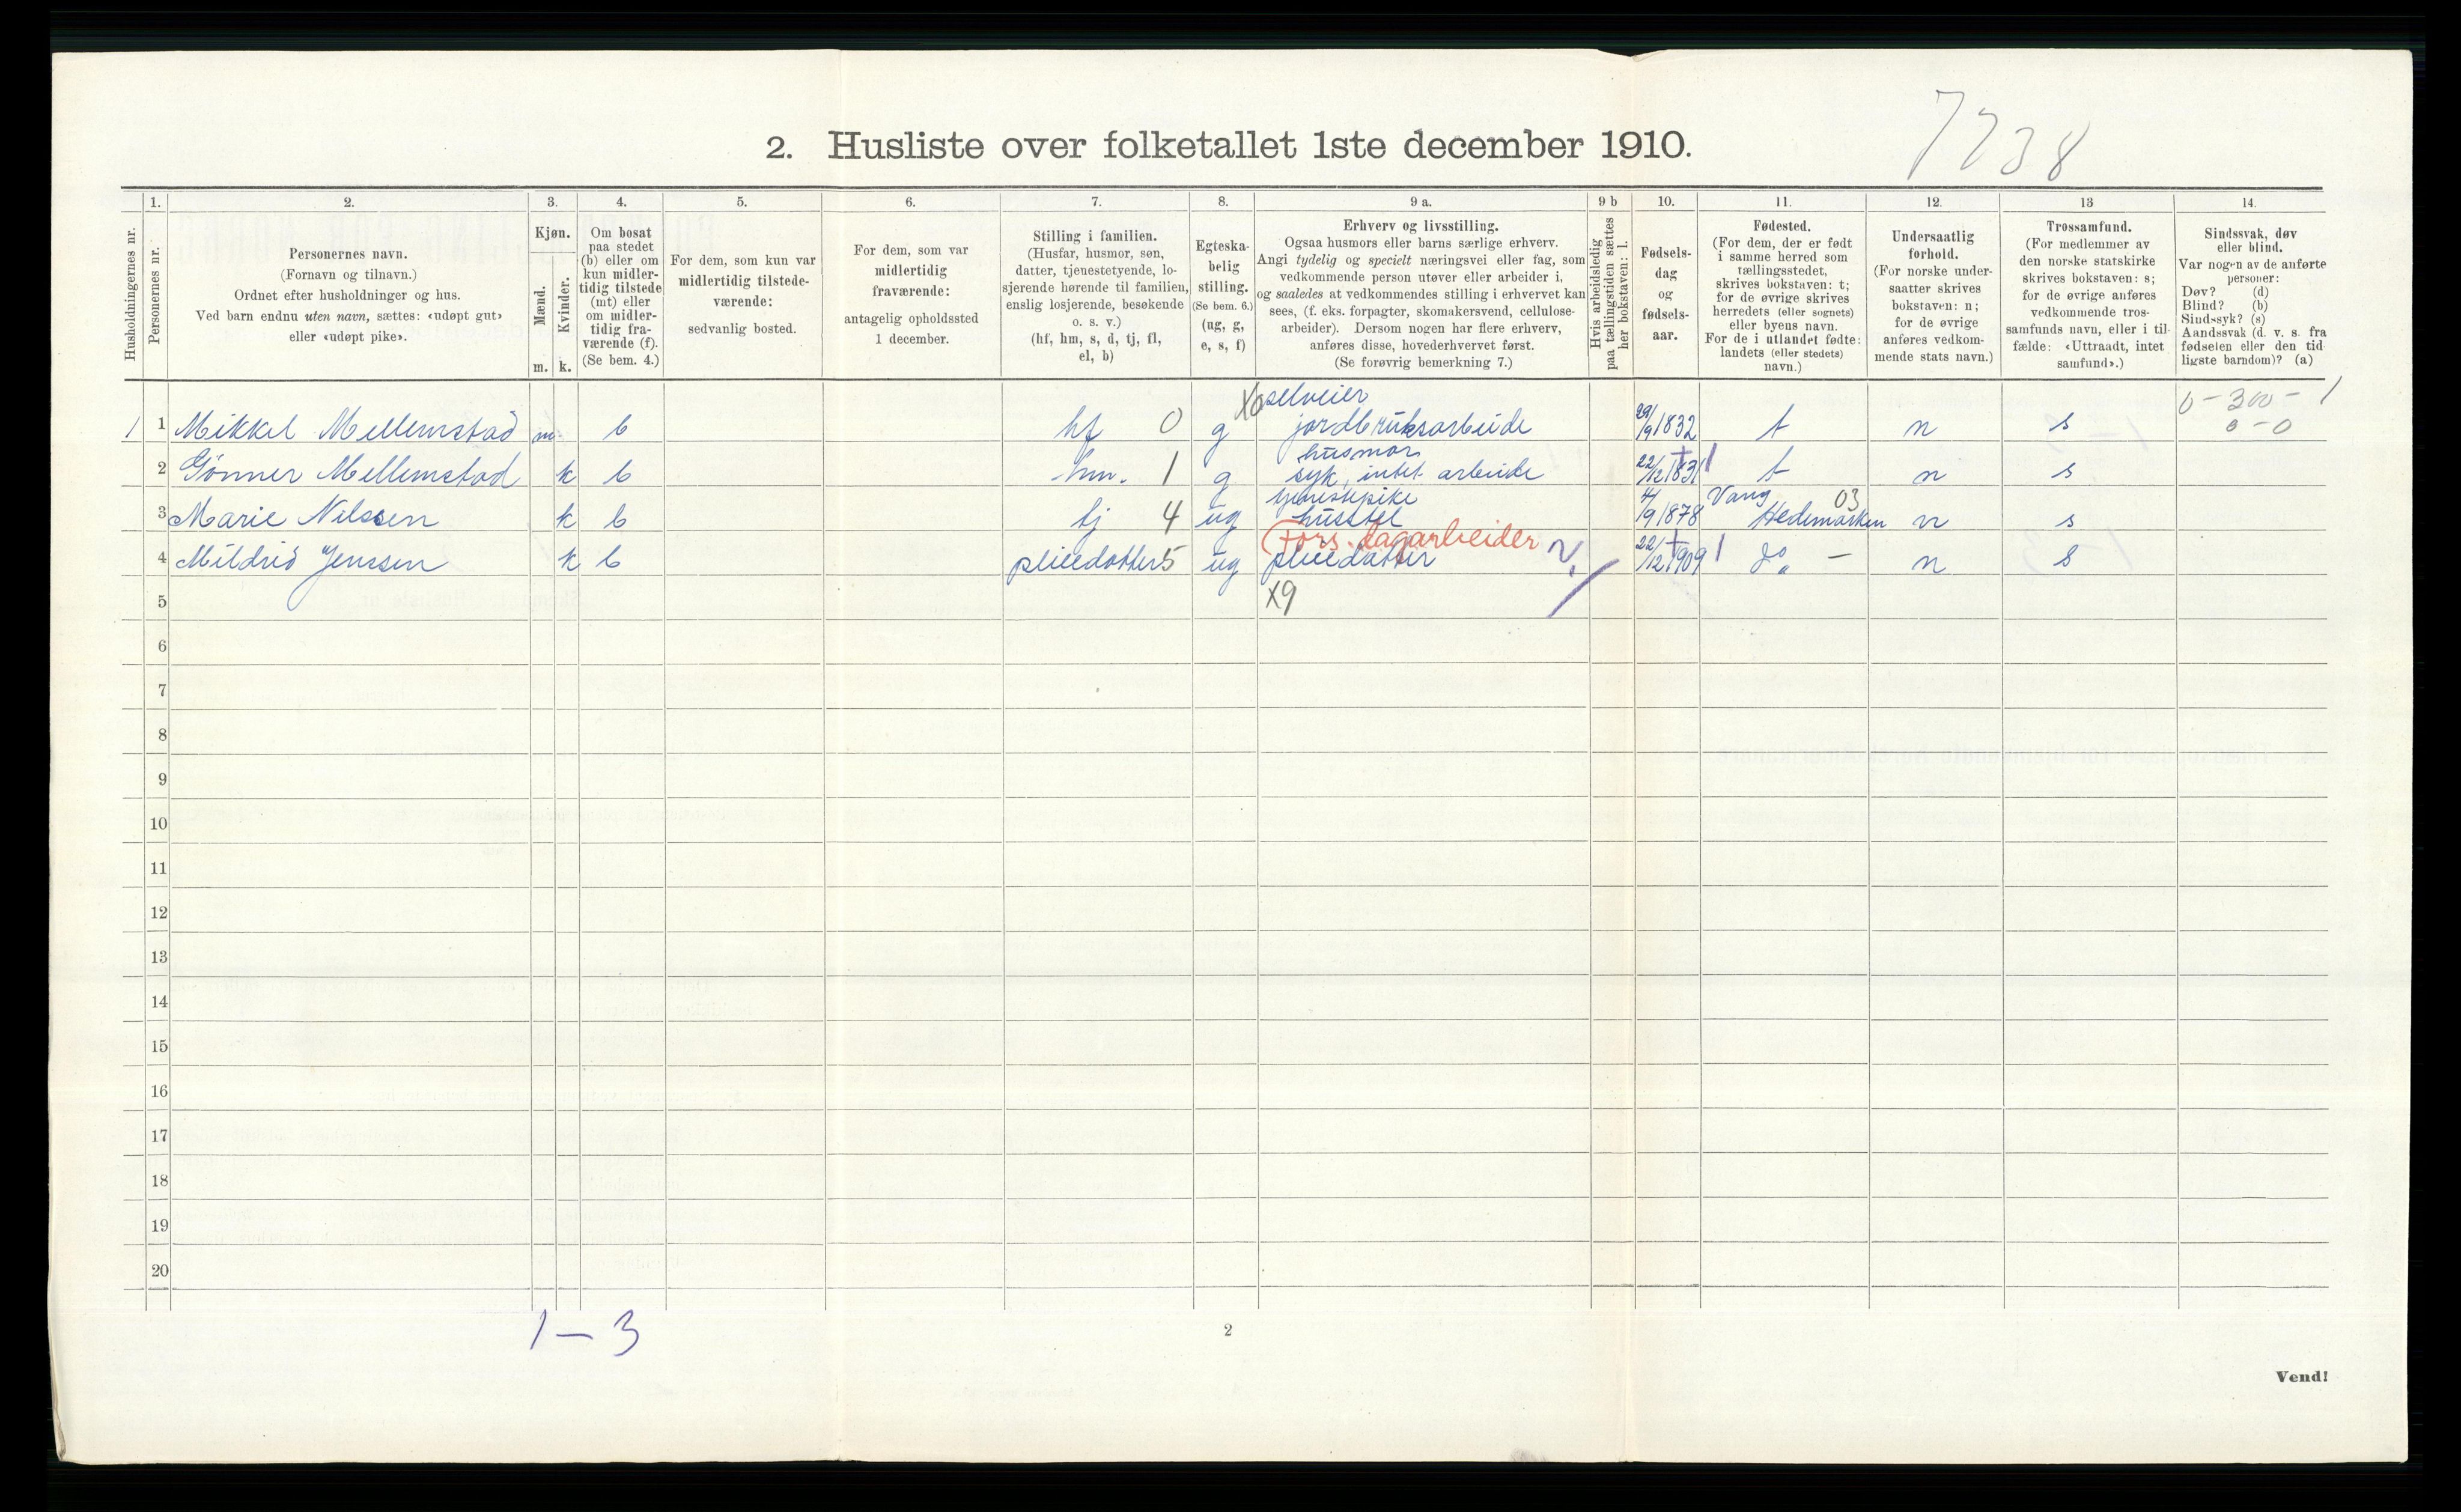 7738
2. Husliste over folketallet 1ste december 1910.
Husholdningernes nr.
1.
Personernes nr.
2.
Personernes navn.
(Fornavn og tilnavn.)
Ordnet efter husholdninger og hus.
Ved barn endnu uten navn, sættes: «udøpt gut»
eller «udøpt pike».
3.
Kjøn.
Mænd. Kvinder.
m. k.
4.
Om bosat
paa stedet
(b) eller om
kun midler-
tidig tilstede
(mt) eller
om midler-
tidig fra-
værende (f).
(Se bem. 4.)
5.
For dem, som kun var
midlertidig tilstede-
værende:
sedvanlig bosted.
6.
For dem, som var
midlertidig
fraværende:
antagelig opholdssted
1 december.
7.
Stilling i familien.
(Husfar, husmor, søn,
datter, tjenestetyende, lo-
sjerende hørende til familien,
enslig losjerende, besøkende
o. s. v.)
(hf, hm, s, d, tj, fl,
el, b)
8.
Egteska-
belig
stilling.
(Se bem. 6.)
(ug, g,
e, s, f)
9 a.
Erhverv og livsstilling.
Ogsaa husmors eller barns særlige erhverv.
Angi tydelig og specielt næringsvei eller fag, som
vedkommende person utøver eller arbeider i,
og saaledes at vedkommendes stilling i erhvervet kan
sees, (f. eks. forpagter, skomakersvend, cellulose-
arbeider). Dersom nogen har flere erhverv,
anføres disse, hovederhvervet først.
(Se forøvrig bemerkning 7.)
9 b
Hvis arbeidsledig
paa tællingstiden sættes
her bokstaven: l.
10.
Fødsels-
dag
og
fødsels-
aar.
11.
Fødested.
(For dem, der er født
i samme herred som
tællingsstedet,
skrives bokstaven: t;
for de øvrige skrives
herredets (eller sognets)
eller byens navn.
For de i utlandet fødte:
landets (eller stedets)
navn.)
12.
Undersaatlig
forhold.
(For norske under-
saatter skrives
bokstaven: n;
for de øvrige
anføres vedkom-
mende stats navn.)
13
Trossamfund.
(For medlemmer av
den norske statskirke
skrives bokstaven: s;
for de øvrige anføres
vedkommende tros-
samfunds navn, eller i til-
fælde: «Uttraadt, intet
samfund».)
14.
Sindssvak, døv
eller blind.
Var nogen av de anførte
personer:
Døv? (d)
Blind? (b)
Sindssyk? (s)
Aandssvak (d. v. s. fra
fødselen eller den tid-
ligste barndom)? (a)
X0 selveier 0-300-1
1 1 Mikkel Mellemstad m b hf 0 g jordbruksarbeide 29/9 1832 t n s 0-0
husmor
2 Gønner Mellemstad k b hm. 1 g syk, intet arbeide 22/12 1831 t n s
tjenestepike Vang 03
3 Marie Nilssen k b tj 4 ug husstel 4/9 1878 Hedemarken n s
Fors. dagarbeider
4 Mildrid Jenssen k b pleiedatter 5 ug pleiedatter 22/12 1909 do - n s
5 X9
6
7
8
9
10
11
12
13
14
15
16
17
18
19
20
1-3
2
Vend!